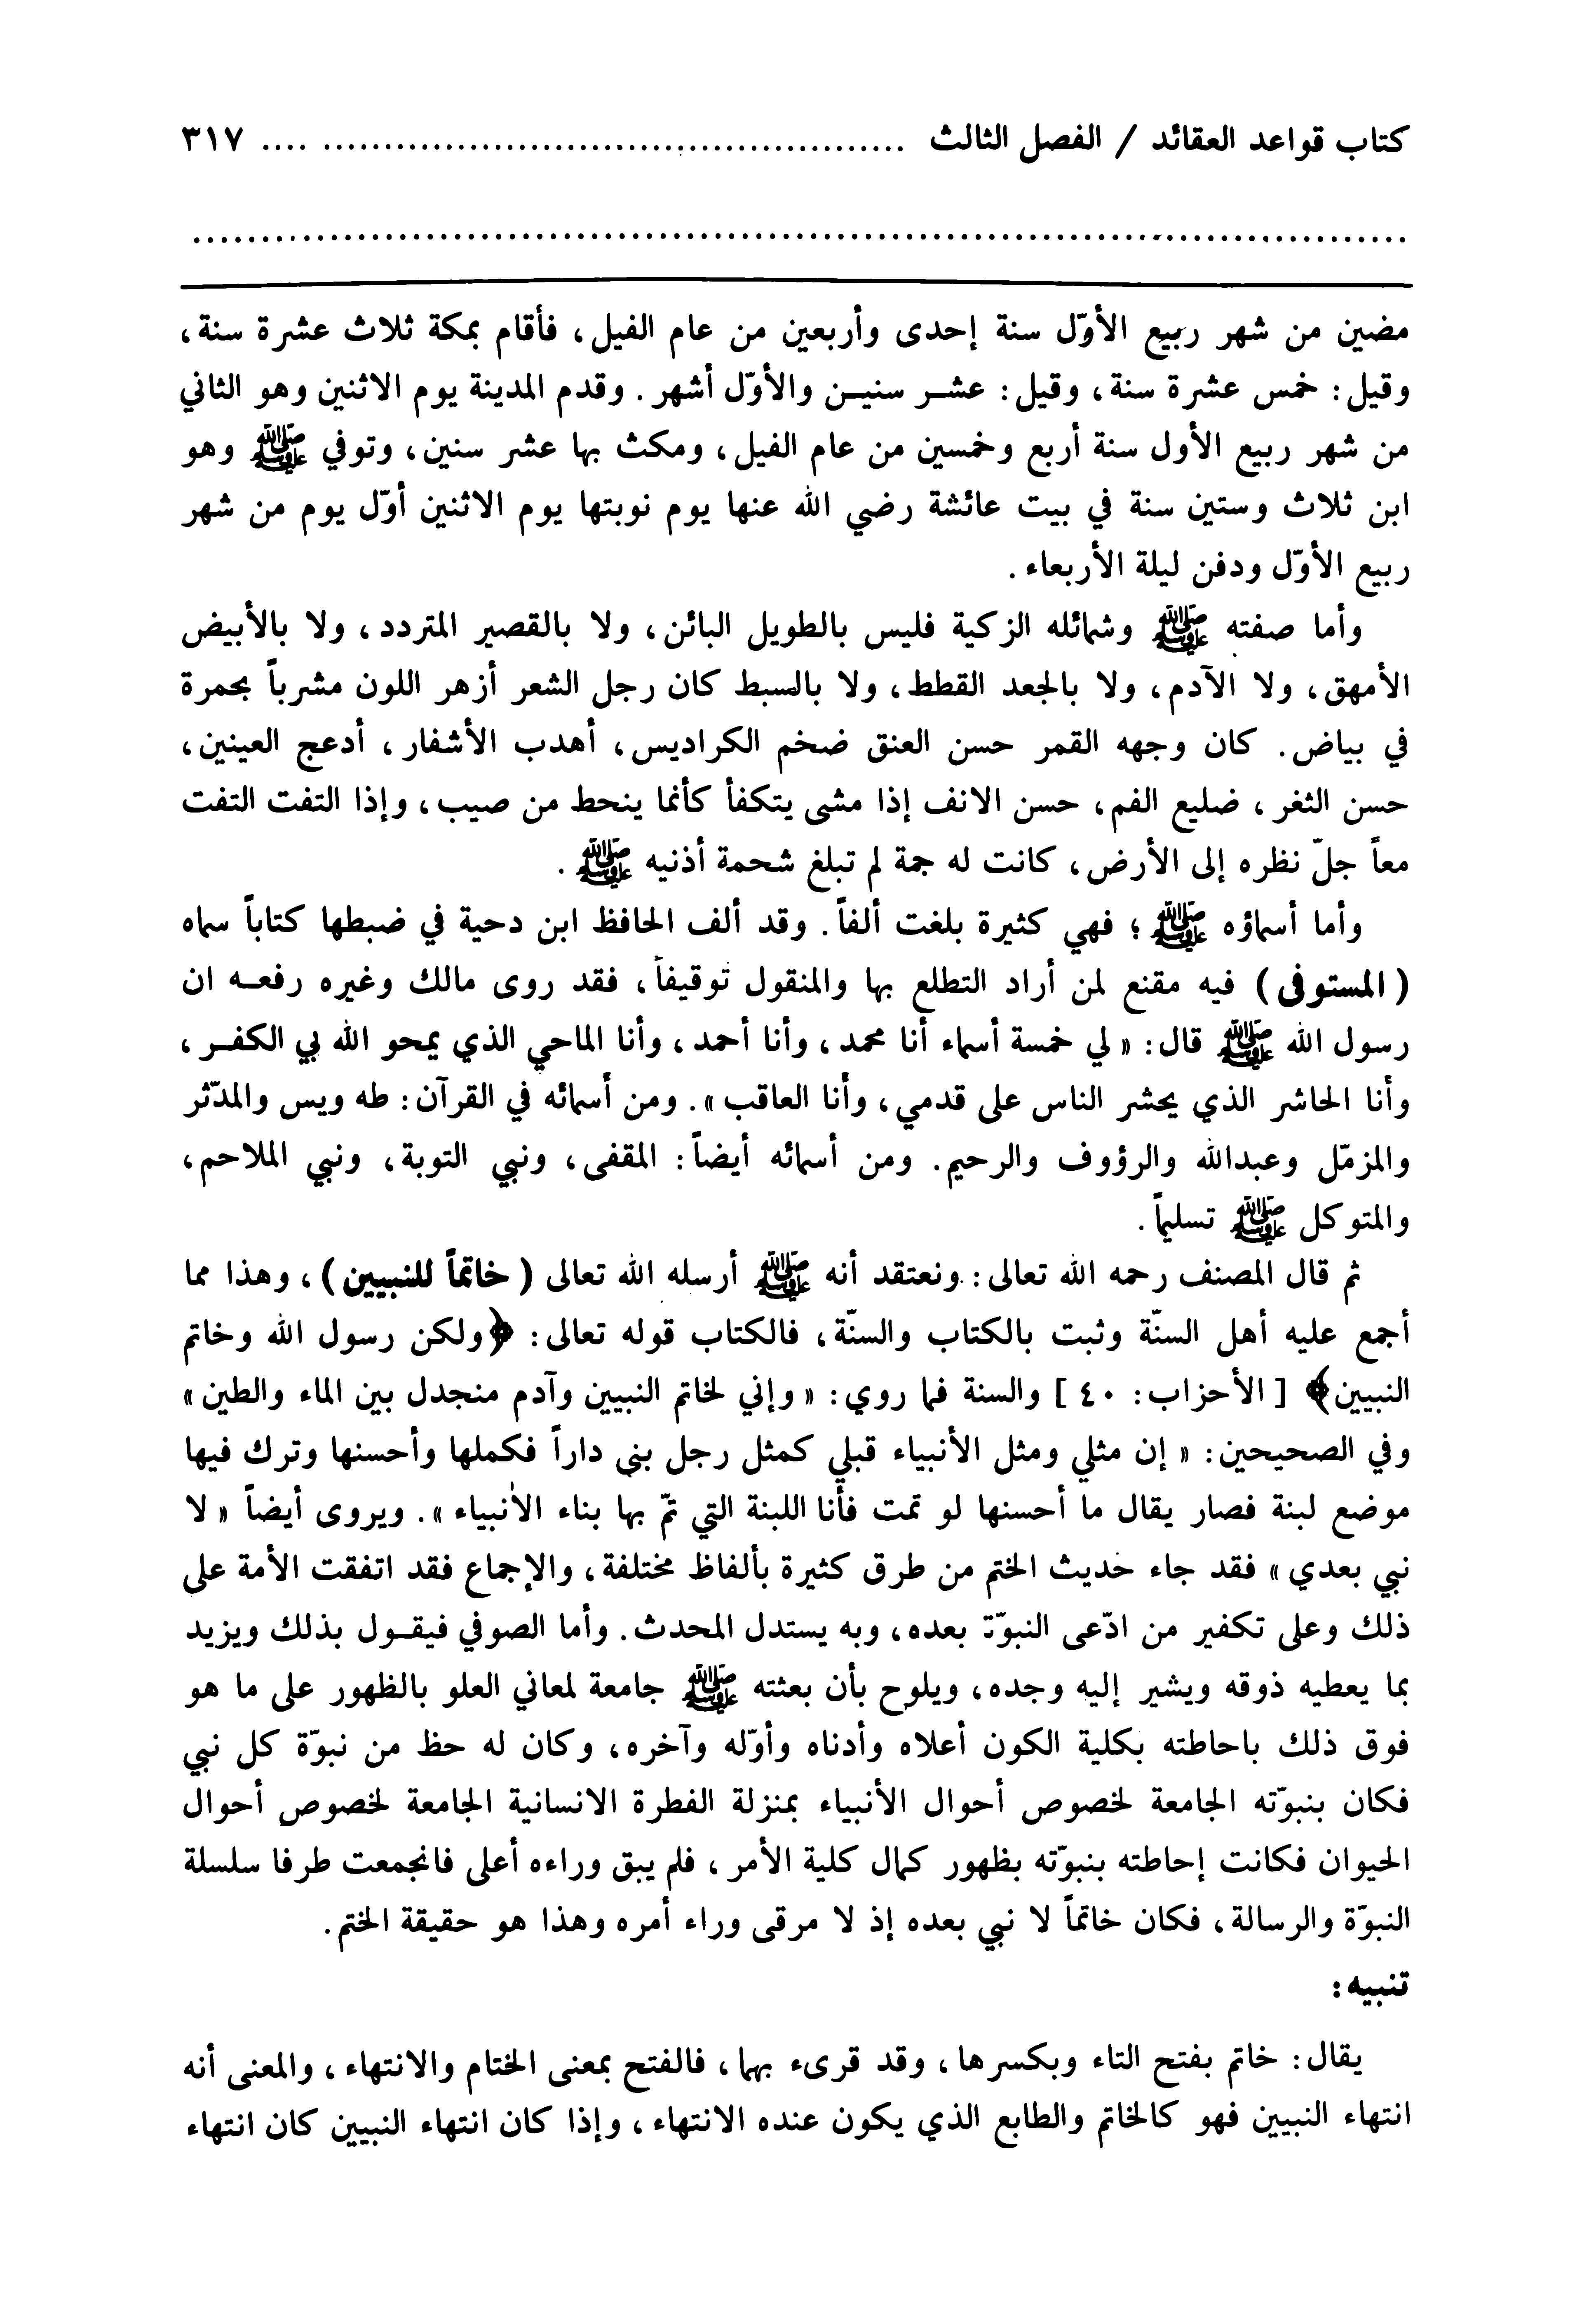 كتاب قواعد العقائد / الفصل الثالث ................................................ .... ٣١٧
مضين من شهر ربيع الأوّل سنة إحدى وأربعين من عام الفيل، فأقام بمكة ثلاث عشرة سنة،
وقيل: خمس عشرة سنة، وقيل: عشـر سنيـن والأوّل أشهر. وقدم المدينة يوم الاثنين وهو الثاني
من شهر ربيع الأول سنة أربع وخمسين من عام الفيل، ومكث بها عشر سنين، وتوفي ﷺ وهو
ابن ثلاث وستين سنة في بيت عائشة رضي الله عنها يوم نوبتها يوم الاثنين أوّل يوم من شهر
ربيع الأوّل ودفن ليلة الأربعاء.
وأما صفته ﷺ وشمائله الزكية فليس بالطويل البائن، ولا بالقصير المتردد، ولا بالأبيض
الأمهق، ولا الآدم، ولا بالجعد القطط، ولا بالسبط كان رجل الشعر أزهر اللون مشرباً بحمرة
في بياض. كان وجهه القمر حسن العنق ضخم الكراديس، أهدب الأشفار، أدعج العينين،
حسن الثغر، ضليع الفم، حسن الانف إذا مشى يتكفأ كأنما ينحط من صيب، وإذا التفت التفت
معاً جلّ نظره إلى الأرض، كانت له جمة لم تبلغ شحمة أذنيه ﷺ.
وأما أسماؤه ﷺ؛ فهي كثيرة بلغت ألفاً. وقد ألف الحافظ ابن دحية في ضبطها كتاباً سماه
(المستوفى) فيه مقنع لمن أراد التطلع بها والمنقول توقيفاً، فقد روى مالك وغيره رفعـه ان
رسول الله ﷺ قال: « لي خمسة أسماء أنا محمد، وأنا أحمد، وأنا الماحي الذي يمحو الله بي الكفـر،
وأنا الحاشر الذي يحشر الناس على قدمي، وأنا العاقب ». ومن أسمائه في القرآن: طه ويس والمدّثر
والمزمّل وعبدالله والرؤوف والرحيم. ومن أسمائه أيضاً: المقفى، ونبي التوبة، ونبي الملاحم،
والمتوكل ﷺ تسليماً.
ثم قال المصنف رحمه الله تعالى: ونعتقد أنه ﷺ أرسله الله تعالى (خاتماً للنبيين)، وهذا مما
أجمع عليه أهل السنّة وثبت بالكتاب والسنّة، فالكتاب قوله تعالى: ﴿ولكن رسول الله وخاتم
النبيين﴾ [ الأحزاب: ٤٠ ] والسنة فما روي: « وإني لخاتم النبيين وآدم منجدل بين الماء والطين »
وفي الصحيحين: « إن مثلي ومثل الأنبياء قبلي كمثل رجل بنى داراً فكملها وأحسنها وترك فيها
موضع لبنة فصار يقال ما أحسنها لو تمت فأنا اللبنة التي تمّ بها بناء الأنبياء ». ويروى أيضاً « لا
نبي بعدي » فقد جاء حديث الختم من طرق كثيرة بألفاظ مختلفة، والإجماع فقد اتفقت الأمة على
ذلك وعلى تكفير من ادّعى النبوّة بعده، وبه يستدل المحدث. وأما الصوفي فيقـول بذلك ويزيد
بما يعطيه ذوقه ويشير إليه وجده، ويلوح بأن بعثته ﷺ جامعة لمعاني العلو بالظهور على ما هو
فوق ذلك باحاطته بكلية الكون أعلاه وأدناه وأوّله وآخره، وكان له حظ من نبوّة كل نبي
فكان بنبوّته الجامعة لخصوص أحوال الأنبياء بمنزلة الفطرة الانسانية الجامعة لخصوص أحوال
الحيوان فكانت إحاطته بنبوّته بظهور كمال كلية الأمر، فلم يبق وراءه أعلى فانجمعت طرفا سلسلة
النبوّة والرسالة، فكان خاتماً لا نبي بعده إذ لا مرقى وراء أمره وهذا هو حقيقة الختم.
تنبيه:
يقال: خاتم بفتح التاء وبكسرها، وقد قرىء بهما، فالفتح بمعنى الختام والانتهاء، والمعنى أنه
انتهاء النبيين فهو كالخاتم والطابع الذي يكون عنده الانتهاء، وإذا كان انتهاء النبيين كان انتهاء